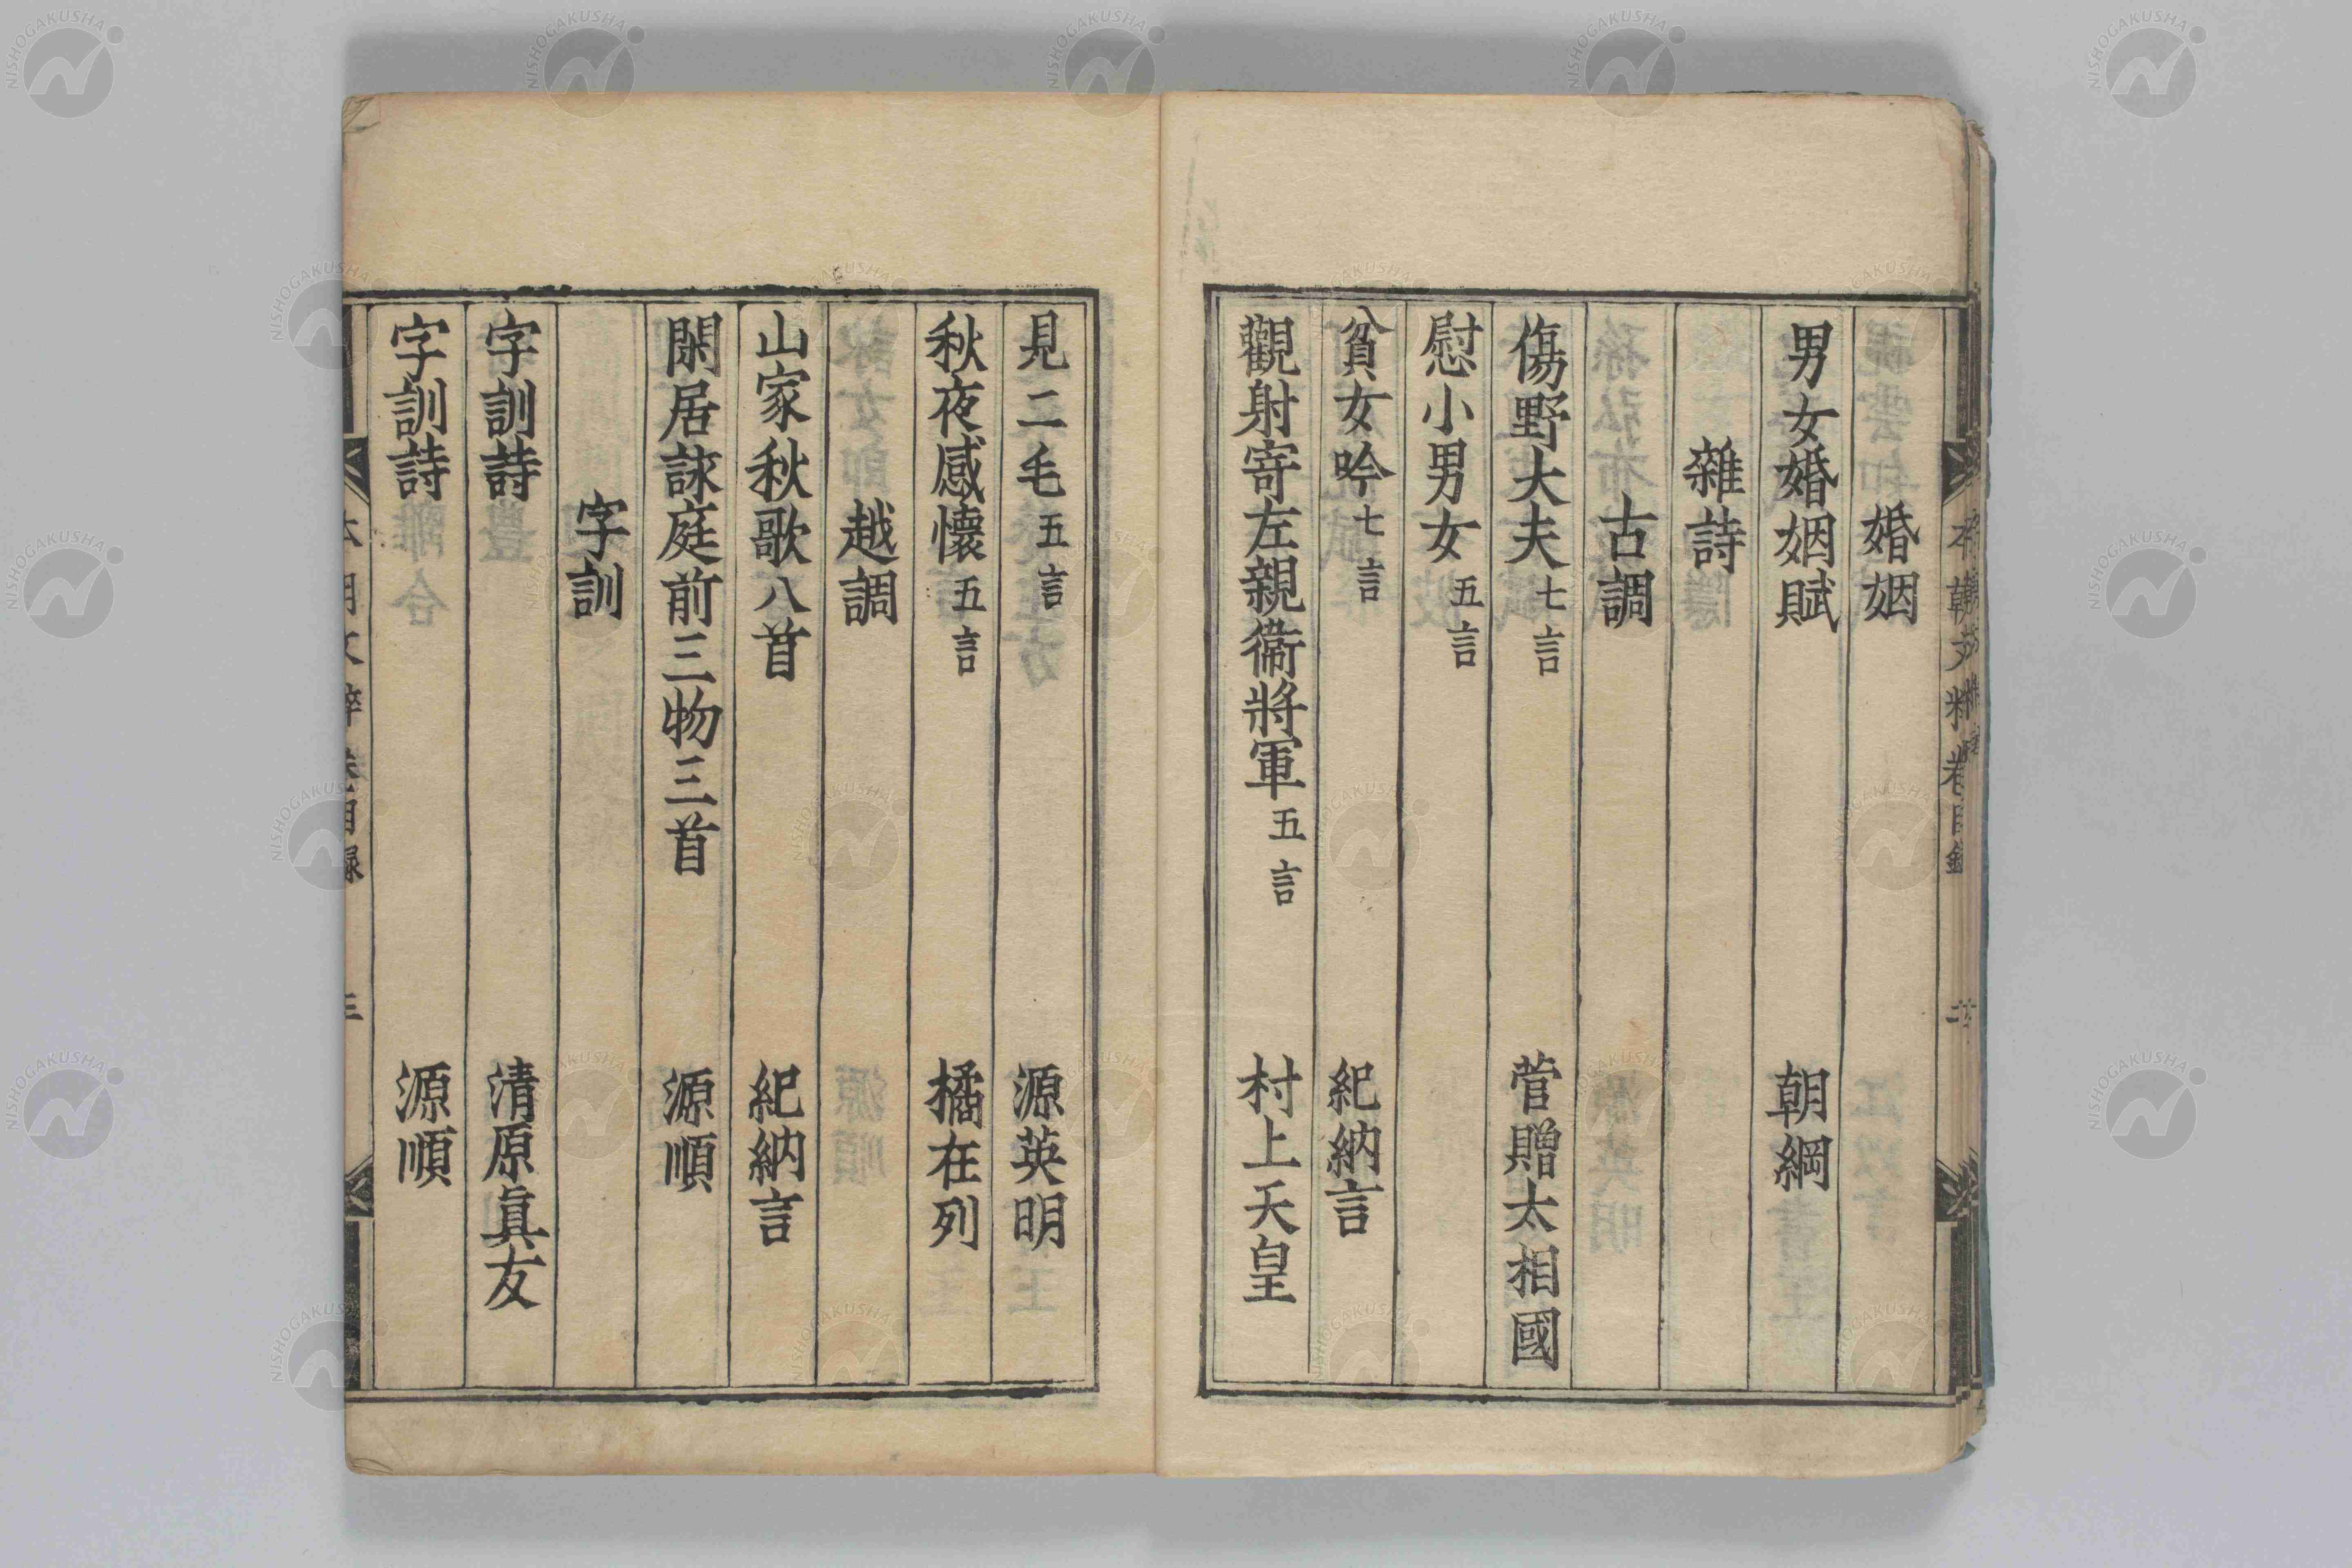 婚姻
男女婚姻賦 朝綱
雜詩
古調
傷野大夫 七言 菅贈太相國
慰小男女 五言
貧女吟 七言 紀納言
觀射寄左親衞將軍 五言 村上天皇
見二毛 五言 源英明
秋夜感懷 五言 橘在列
越調
山家秋歌八首 紀納言
閑居詠庭前三物三首 源順
字訓
字訓詩 清原眞友
字訓詩 源順
NISHOGAKUSHA